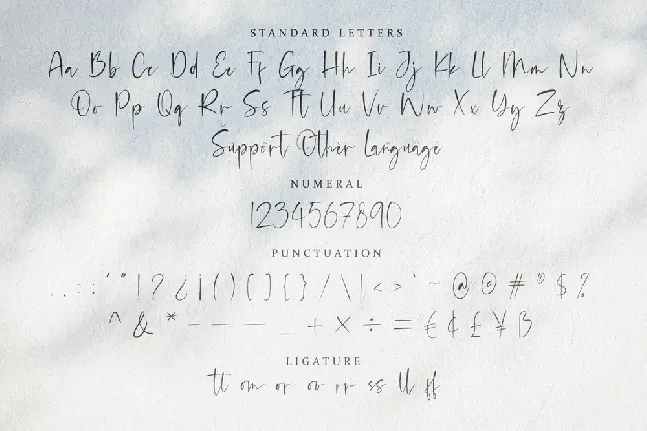 STANDARD LETTERS
Aa Bb Cc Dd Ee Ff Gg Hh Ii Jj Kk Ll Mm Nn
Oo Pp Qq Rr Ss Tt Uu Vv Ww Xx Yy Zz
Support Other Language
NUMERAL
1234567890
PUNCTUATION
. , : ; ' " | ? ¿ ¡ ( ) [ ] { } / \ | < > ` ~ @ © # ® $ %
^ & * - – — _ + × ÷ = € ¢ £ ¥ ß
LIGATURE
tt om or ov rr ss ll ff